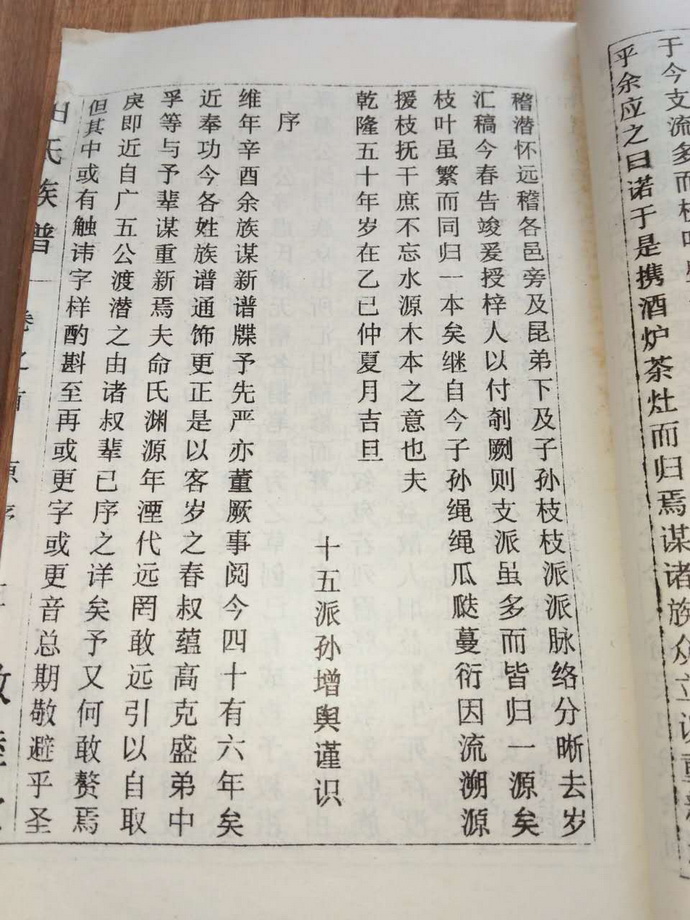 于今支流多而枝叶
乎余应之曰诺于是携酒炉茶灶而归焉谋诸族众立议重
稽潜怀远稽各邑旁及昆弟下及子孙枝枝派派脉络分晰去岁
汇稿今春告竣爰授梓人以付剞劂则支派虽多而皆归一源矣
枝叶虽繁而同归一本矣继自今子孙绳绳瓜瓞蔓衍因流溯源
援枝抚干庶不忘水源木本之意也夫
乾隆五十年岁在乙巳仲夏月吉旦
十五派孙增舆谨识
序
维年辛酉余族谋新谱牒予先严亦董厥事阅今四十有六年矣
近奉功令各姓族谱通饰更正是以客岁之春叔蕴高克盛弟中
孚等与予辈谋重新焉夫命氏渊源年湮代远罔敢远引以自取
戾即近自广五公渡潜之由诸叔辈已序之详矣予又何敢赘焉
但其中或有触讳字样酌斟至再或更字或更音总期敬避乎圣
田氏族谱 卷之首 原序